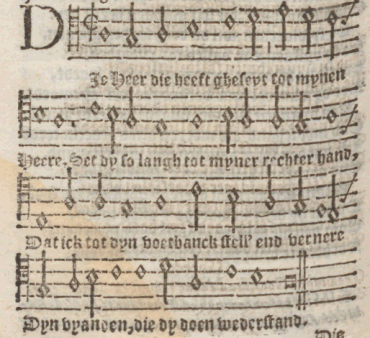 D
Je Heer die heeft gheseyt tot mynen
Heere, Set dy so langh tot myner rechter hand,
Dat ick tot dyn voetbanck stell' end vernere
Dyn vyanden, die dy doen wederstand.
Die